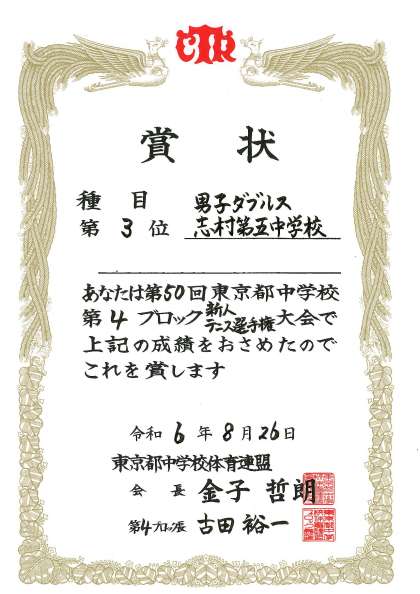 賞状
種目 男子ダブルス
第3位 志村第五中学校
あなたは第50回東京都中学校
第4ブロック新人テニス選手権大会で
上記の成績をおさめたので
これを賞します
令和6年8月26日
東京都中学校体育連盟
会長 金子哲朗
第4ブロック長 古田裕一